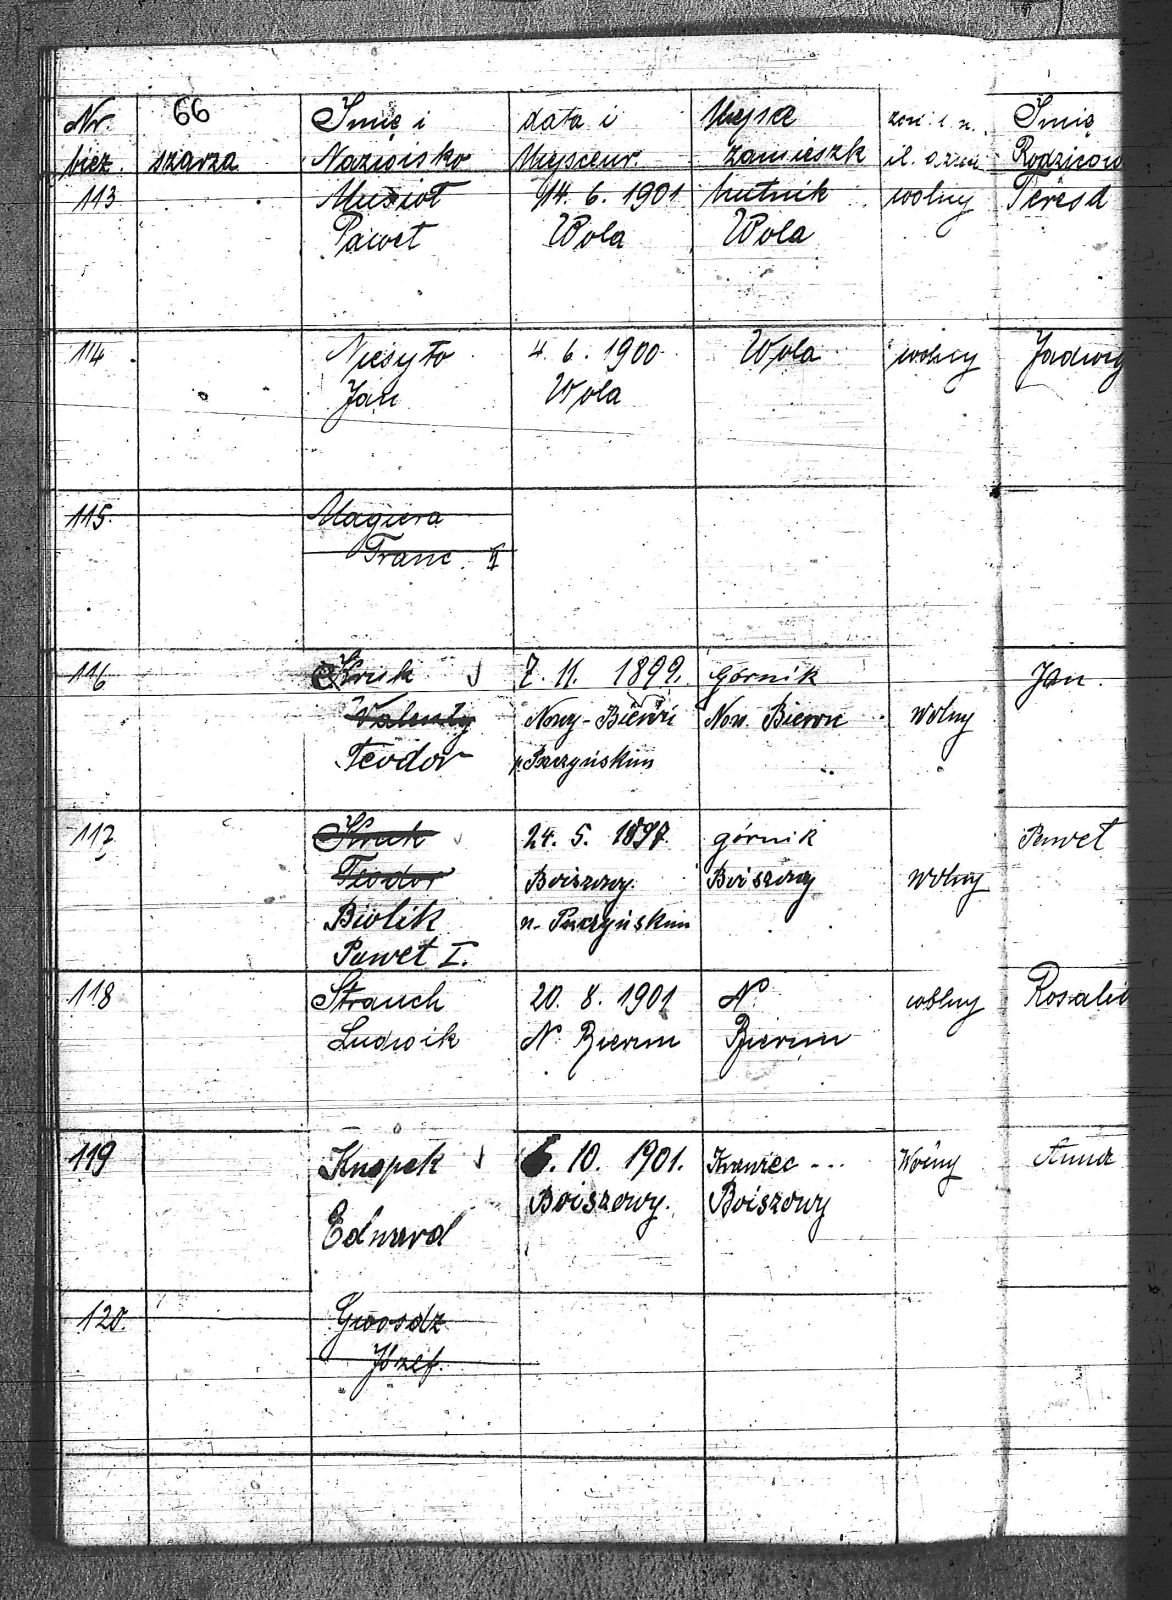 66
Nr. Imię i data i Miejsce żon. i. n. Imię
bież. szarża Nazwisko Miejsceur. zamieszk il. Rodziców
113 Musioł 14. 6. 1901 hutnik wolny Teresa
Paweł Wola Wola
114 Niesyto 4. 6. 1900 Wola wolny Jadwig
Jan Wola
115. Magiera
Franc. II
116 Kruk 7. 11. 1899. górnik Jan.
Walenty Nowy-Bieruń Now. Bieruń wolny
Teodor p. Pszczyńskim
117 Kruk 24. 5. 1897. górnik Paweł
Teodor Boiszowy. Boiszowy wolny
Biolik n. Pszczyńskim
Paweł I.
118 Strauch 20. 8. 1901 N. wolny Rosali
Ludwik N. Bierun Bierun
119 Knopek 6. 10. 1901. Krawiec --- Wolny Anna
Edward Boiszowy. Boiszowy
120. Gwosdz
Józef.